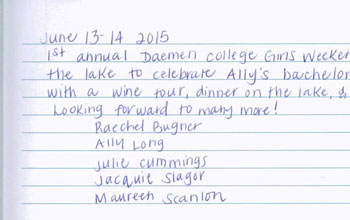 June 13-14 2015
1st annual Daemen college Girls Weeke
the lake to celebrate Ally's bachelor
with a wine tour, dinner on the lake, &
Looking forward to many more!
Raechel Bugner
Ally Long
Julie Cummings
Jacquie Slagor
Maureen Scanlon